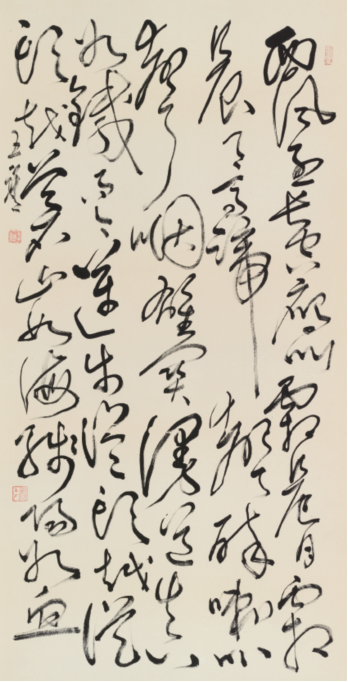 西风烈长空雁叫霜晨月霜
晨月马蹄声碎喇叭
声咽雄关漫道真
如铁而今迈步从头越从
头越苍山如海残阳如血
王